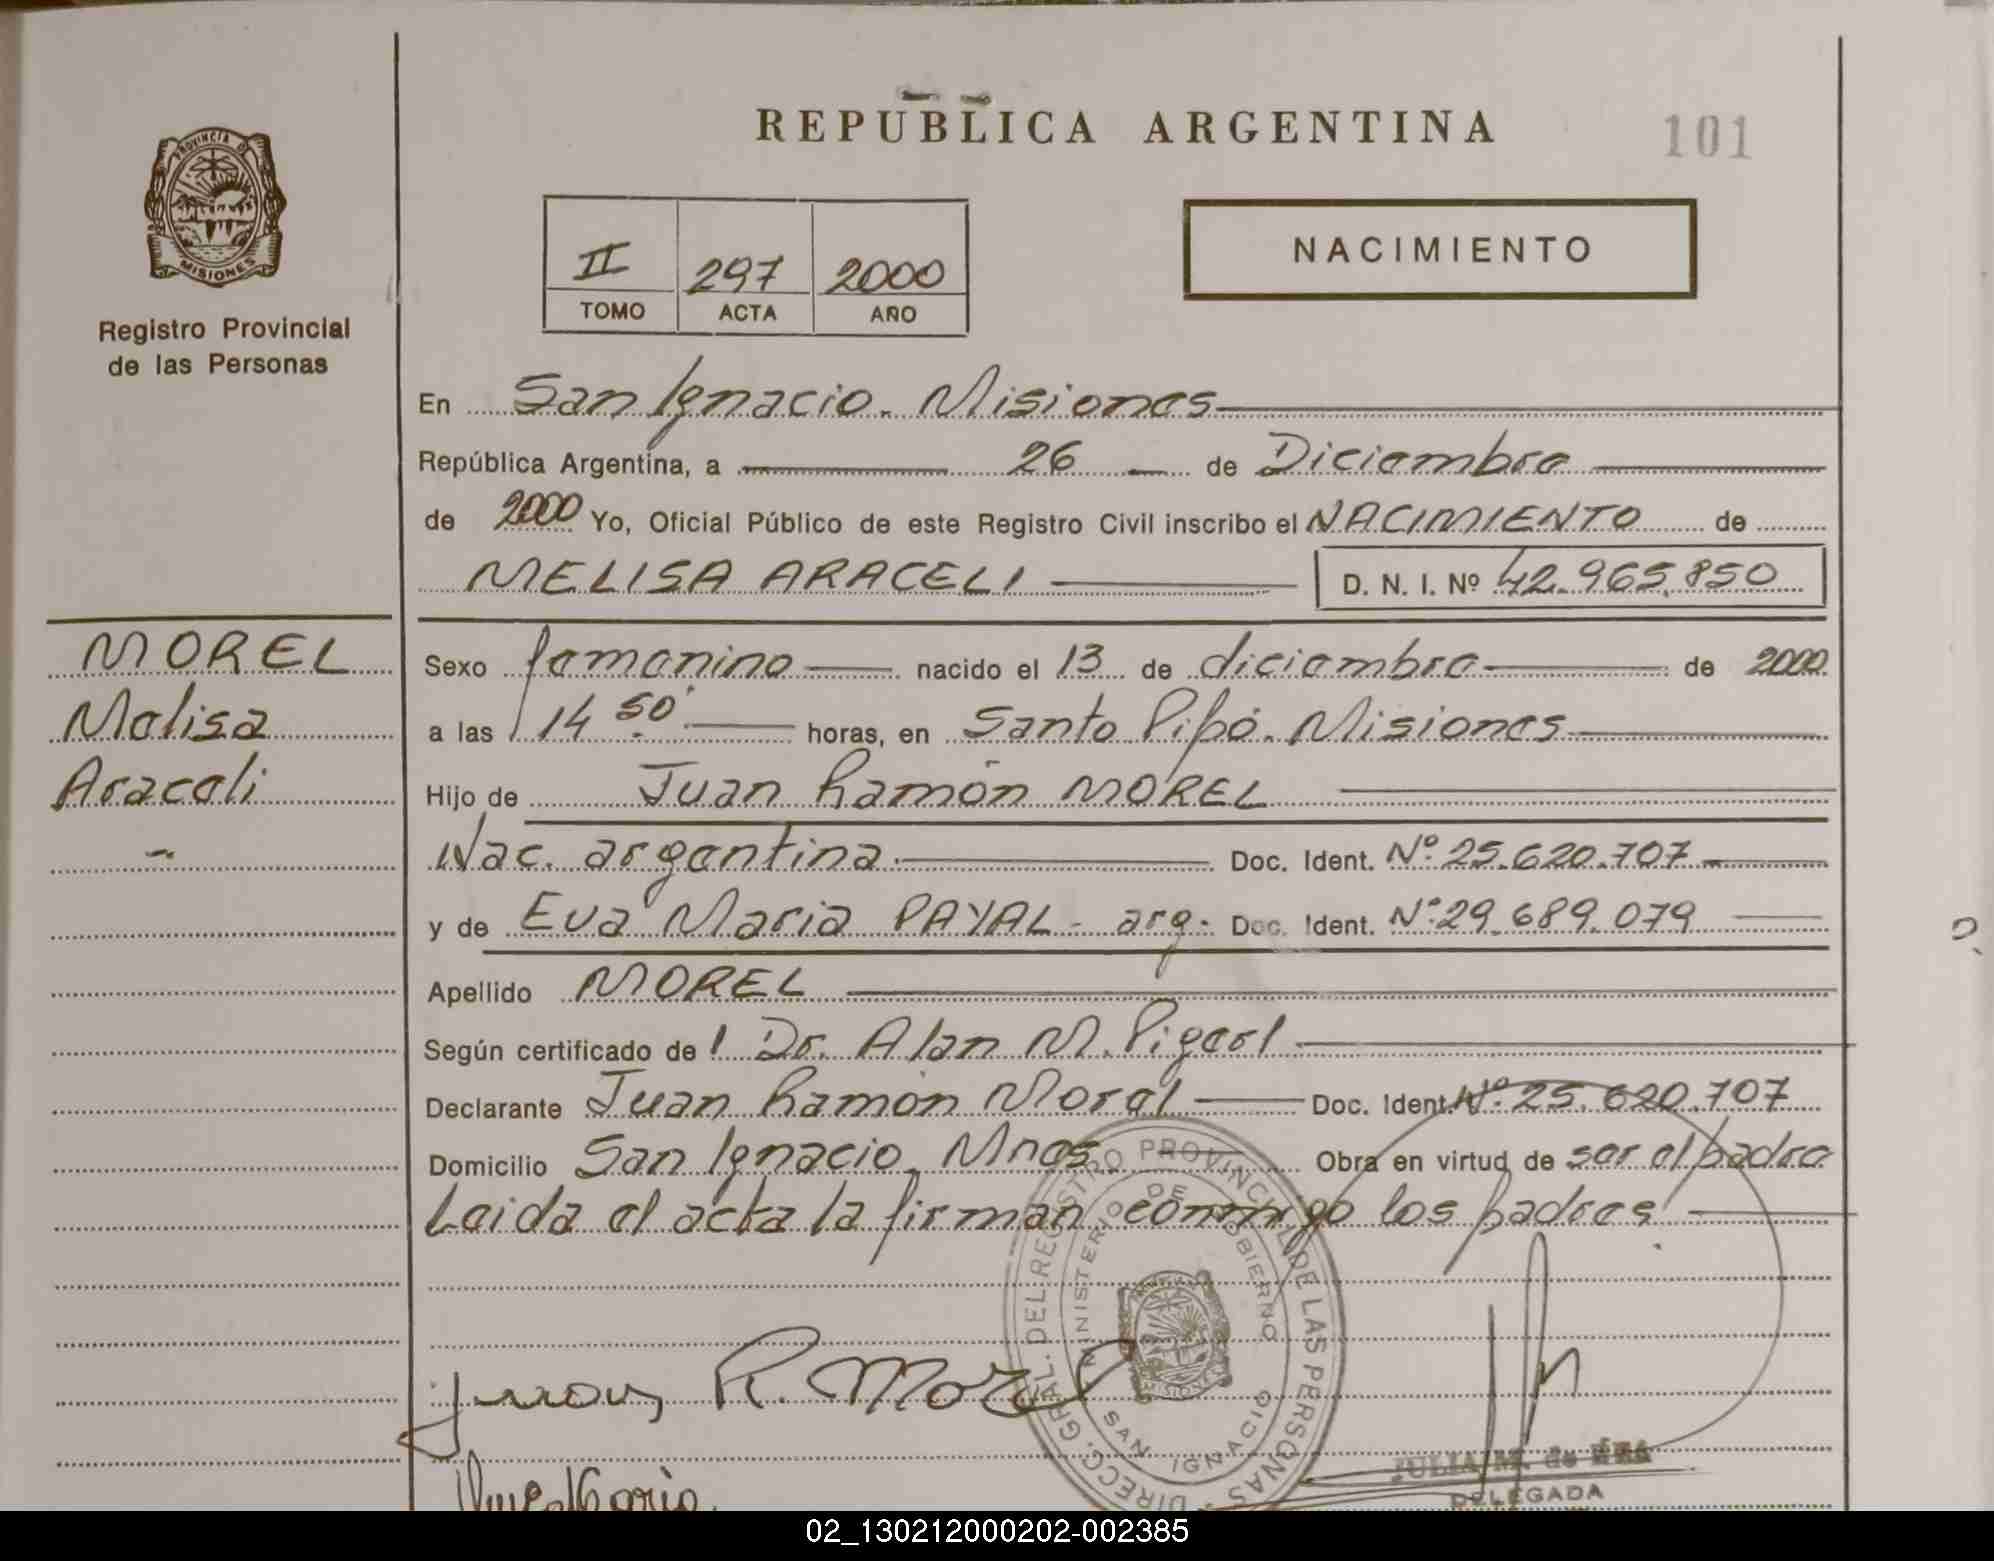 REPUBLICA ARGENTINA
101
PROVINCIA D
MISIONES
Registro Provincial
de las Personas
II 297 2000
TOMO ACTA AÑO
NACIMIENTO
En San Ignacio. Misiones
República Argentina, a 26 de Diciembre
de 2000 Yo, Oficial Público de este Registro Civil inscribo el NACIMIENTO de
MELISA ARACELI D. N. I. Nº 42.965.850
MOREL
Melisa
Araceli
Sexo femenino nacido el 13 de diciembre de 2000
a las 14.50' horas, en Santo Pipó. Misiones
Hijo de Juan Ramón MOREL
Nac. argentina. Doc. Ident. Nº 25.620.707
y de Eva Maria PAYAL - arg. Doc. Ident. Nº 29.689.079
Apellido MOREL
Según certificado de l Dr. Alan M. Pigerl
Declarante Juan Ramón Morel Doc. Ident. Nº 25.620.707
Domicilio San Ignacio, Mnes Obra en virtud de ser el padre
Leida el acta la firman conmigo los padres
DIRECC. GRAL. DEL REGISTRO PROVINCIAL DE LAS PERSONAS
MINISTERIO DE GOBIERNO
MISIONES
SAN IGNACIO
Juan R. Morel
JULIA M. de
DELEGADA
02_130212000202-002385